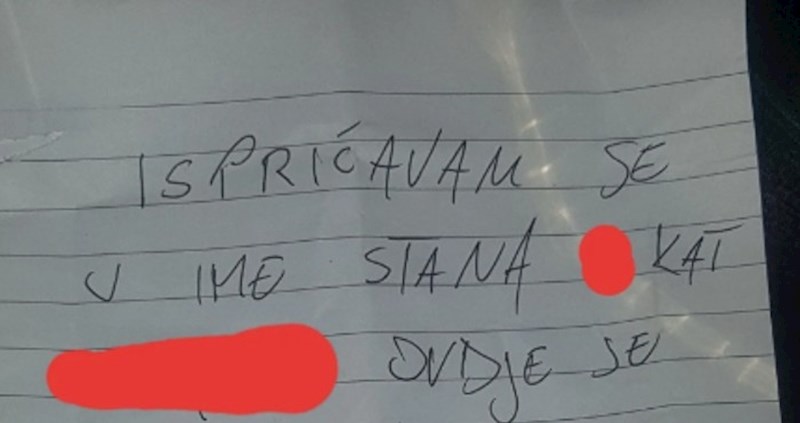 ISPRIĆAVAM SE
U IME STANA KAT
OVDJE SE